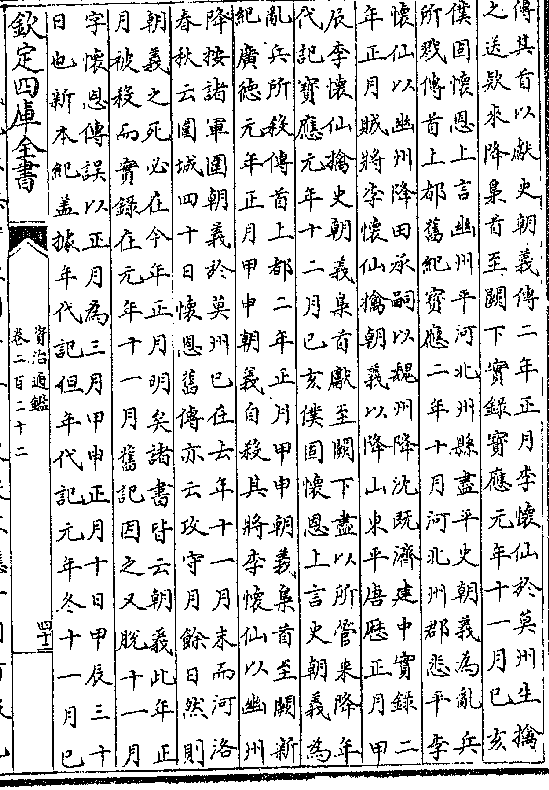 傳其首以獻史朝義傳二年正月李懷仙於莫州生擒
之送欵來降梟首至闕下實録寳應元年十一月己亥
僕固懷恩上言幽州平河北州縣盡平史朝義為亂兵
所戮傳首上都舊紀寳應二年十月河北州郡悉平李
懷仙以幽州降田承嗣以魏州降沈既濟建中實録二
年正月賊將李懷仙擒朝義以降山東平唐厯正月甲
辰李懷仙擒史朝義梟首獻至闕下盡以所管来降年
代記寳應元年十二月己亥僕固懷恩上言史朝義為
亂兵所殺傳首上都二年正月甲申朝義梟首至闕新
紀廣徳元年正月甲申朝義自殺其將李懷仙以幽州
降按諸軍圍朝義於莫州已在去年十一月末而河洛
春秋云圍城四十日懷恩舊傳亦云攻守月餘日然則
朝義之死必在今年正月明矣諸書皆云朝義此年正
月被殺而實録在元年十一月舊記因之又脱十一月
字懷恩傳誤以正月為三月甲申正月十日甲辰三十
日也新本紀盖據年代記但年代記元年冬十一月已
欽定四庫全書
資治通鑑
卷二百二十二